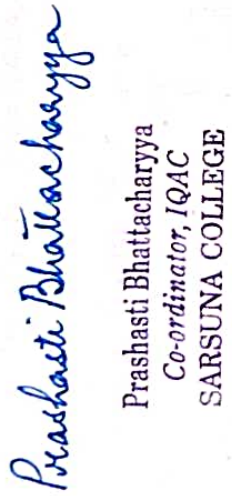 Prashasti Bhattacharyya
Prashasti Bhattacharyya
Co-ordinator, IQAC
SARSUNA COLLEGE